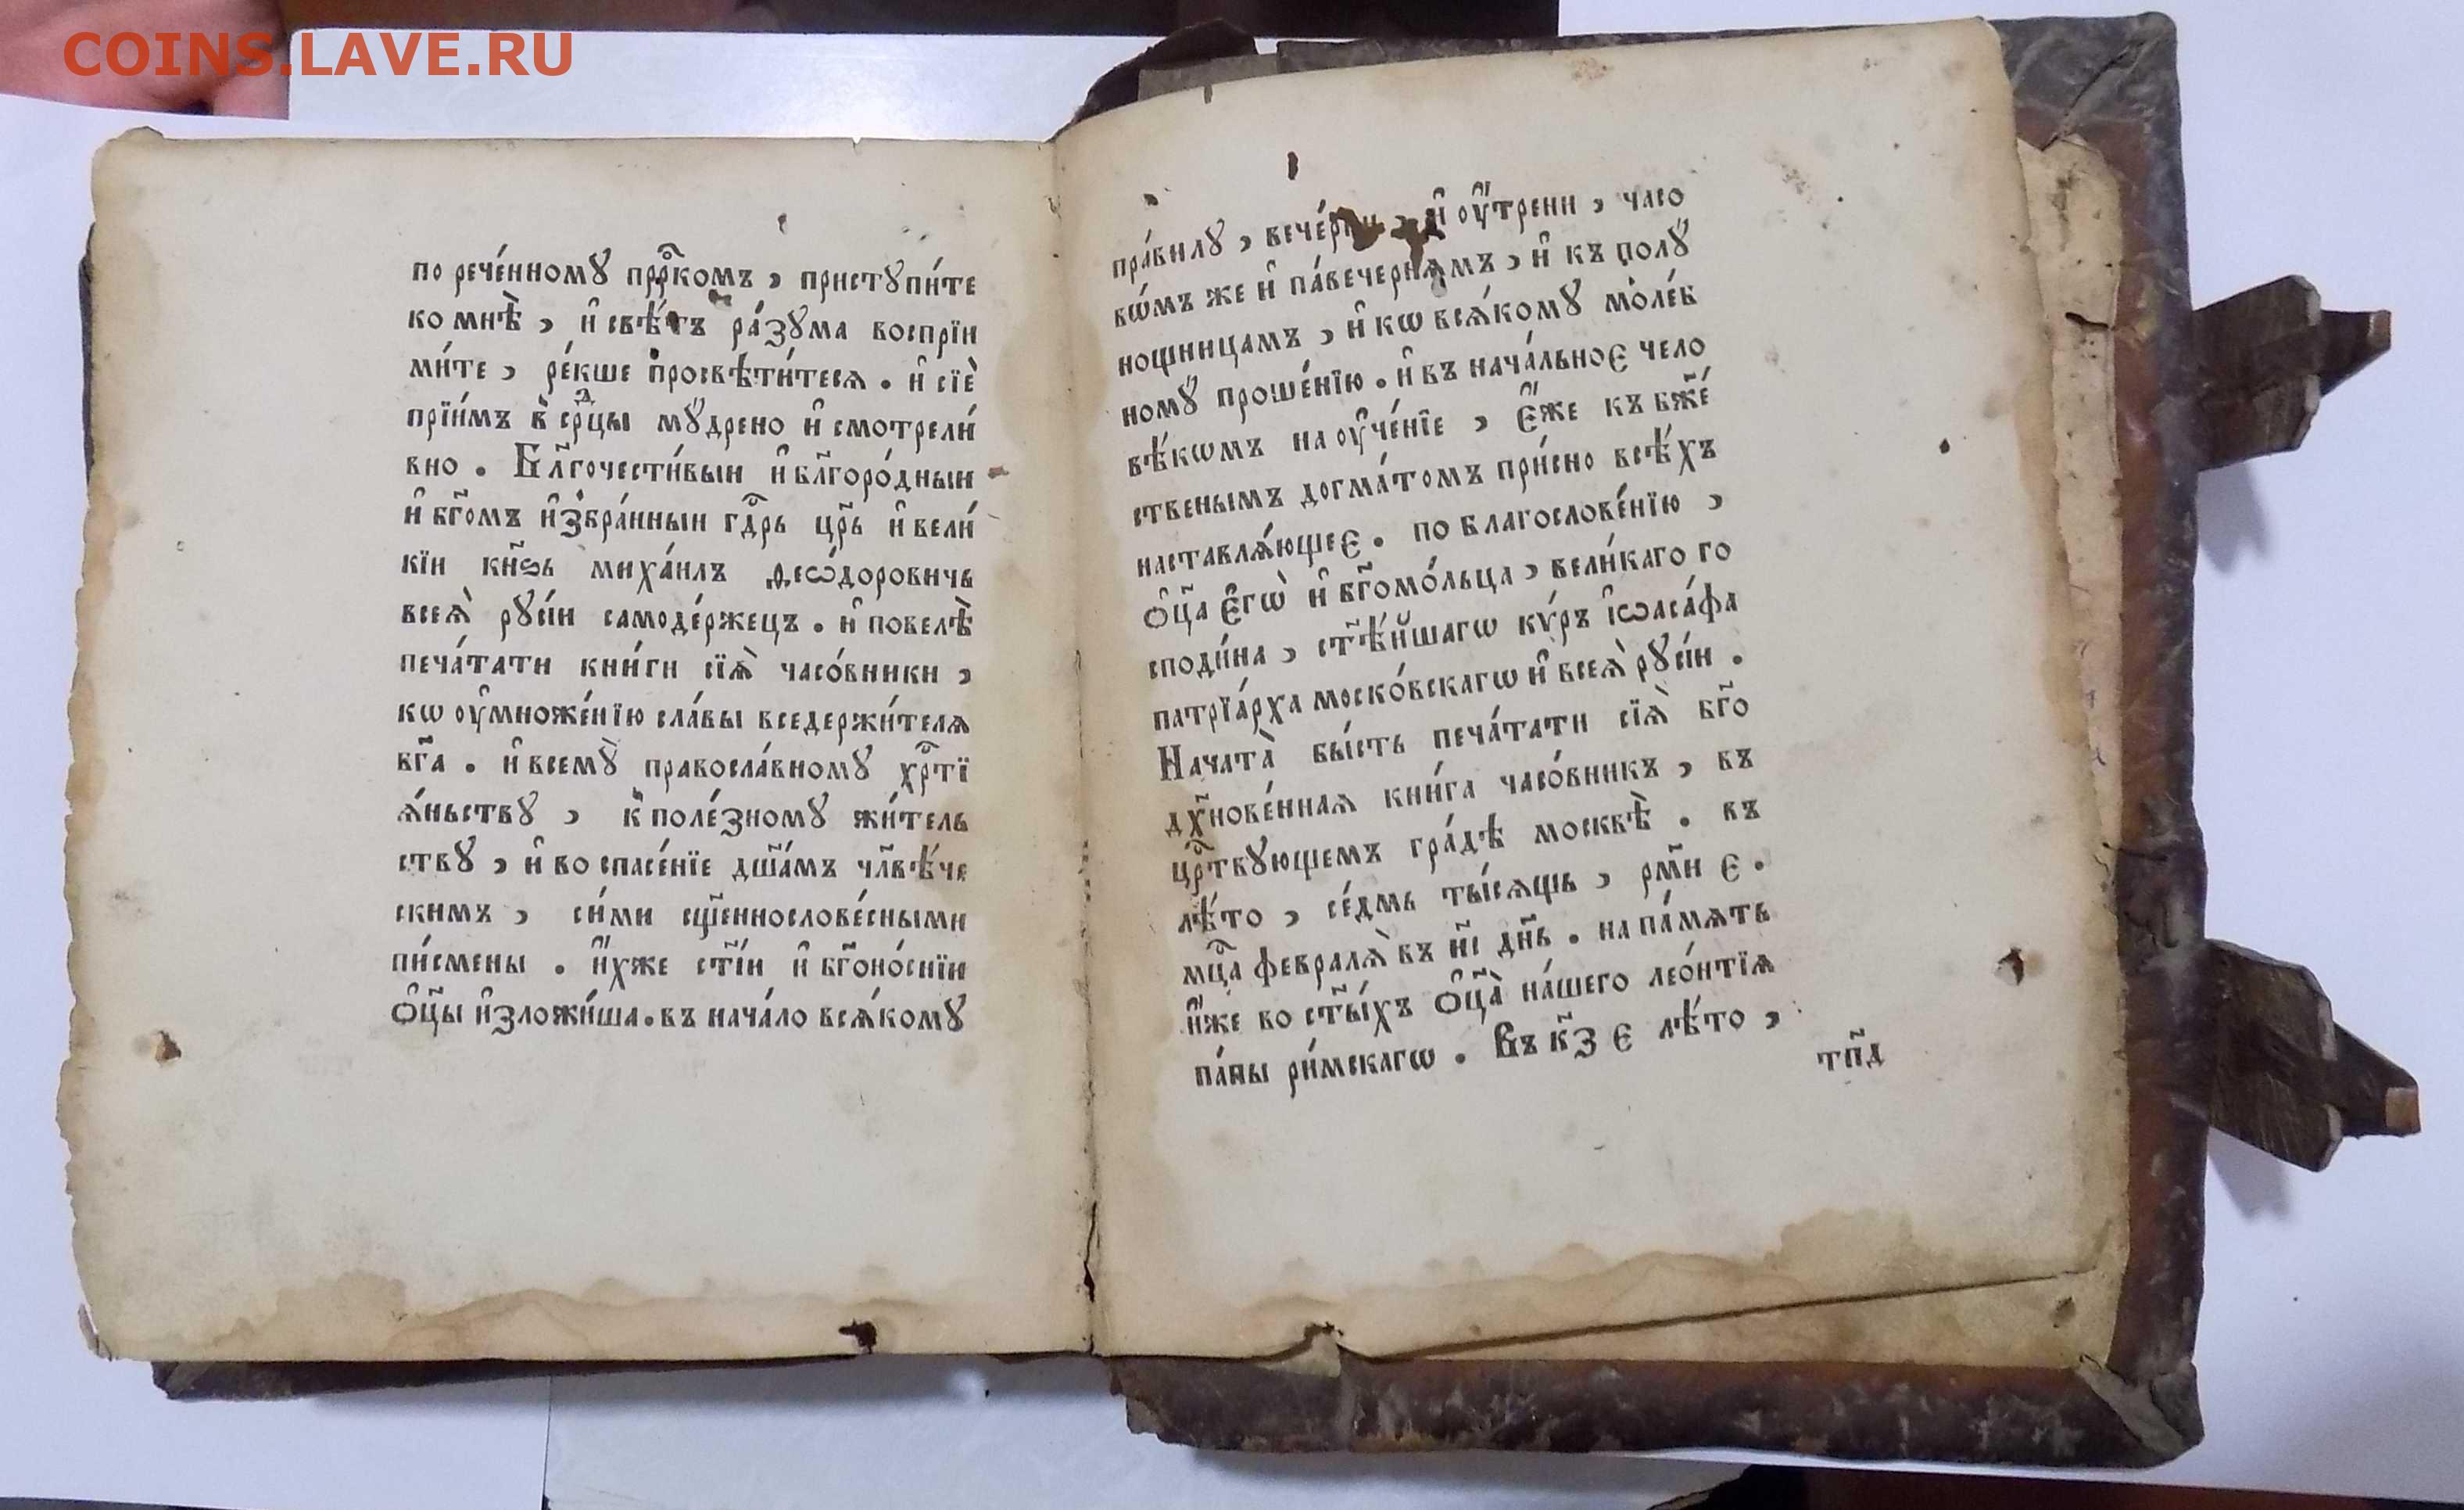 COINS.LAVE.RU
по рече́нномꙋ прⷪ҇ркомъ , пристꙋпи́те
ко мнѣ̀ , и҆ свѣ́тъ ра́зꙋма воспрїи
ми́те , ре́кше просвѣти́теся . и҆ сїѐ
прїи́мъ в҆ срⷣцы мꙋ́дрено и҆ смотрели́
вно . Бл҃гочести́выи и҆ бл҃горо́дныи
и҆ бг҃омъ и҆збра́нныи гдⷭ҇рь цр҃ь и҆ вели́
кїи кн҃ѕь миха́илъ ѳеѡ́доровичь
всеѧ̀ рꙋсі́и самоде́ржецъ . и҆ повелѣ̀
печа́тати кни́ги сїѧ̀ часо́вники ,
кѡ оу҆множе́нїю сла́вы вседержи́телѧ
бг҃а . и҆ всемꙋ̀ правосла́вномꙋ хрⷭ҇тї
ѧ́ньствꙋ , к҆ поле́зномꙋ жи́тель
ствꙋ , и҆ во спасе́нїе дш҃а́мъ чл҃вѣ́че
скимъ , си́ми сщ҃еннослове́сными
пи́смены . и҆́хже ст҃і́и и҆ бг҃оно́снїи
ѻ҆ц҃ы и҆зложи́ша . въ нача́ло всѧ́комꙋ
пра́вилꙋ , вече́рни , и҆ оу҆́трени , часо
вѡ́мъ же и҆ па́вечернѧмъ , и҆ къ полꙋ́
нощницамъ , и҆ кѡ всѧ́комꙋ моле́б
номꙋ́ проше́нїю . и҆ въ нача́льное чело
вѣ́кѡмъ на оу҆че́нїе , є҆́же къ бж҃е́
ственымъ догма́томъ при́сно всѣ́хъ
наставлѧ́ющее . по благослове́нїю ,
ѻ҆ц҃а є҆гѡ̀ и҆ бг҃омо́льца , вели́каго го
споди́на , ст҃ѣ́йшагѡ кѵ́ръ і҆ѡаса́фа
патрїа́рха моско́вскагѡ и҆ всеѧ̀ рꙋсі́и .
Начата̀ бы́сть печа́тати сїѧ̀ бг҃о
дх҃нове́ннаѧ кни́га часо́вникъ , въ
црⷭ҇твꙋющемъ гра́дѣ москвѣ̀ . въ
лѣ́то , се́дмь ты́сѧщь , рм҃и є .
мцⷭ҇а февралѧ̀ въ н҃і дн҃ь . на па́мѧть
и҆́же во ст҃ы́хъ ѻ҆ц҃а̀ на́шего лео́нтїѧ
па́пы ри́мскагѡ . Въ к҃з є лѣ́то ,
тп҃д